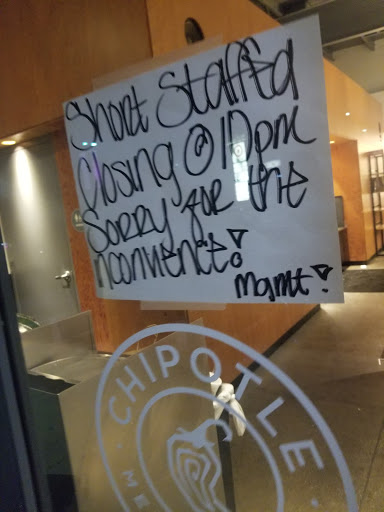 Short Staffed
Closing @ 10pm
Sorry for the
inconvience!
mgmt!
CHIPOTLE
ME